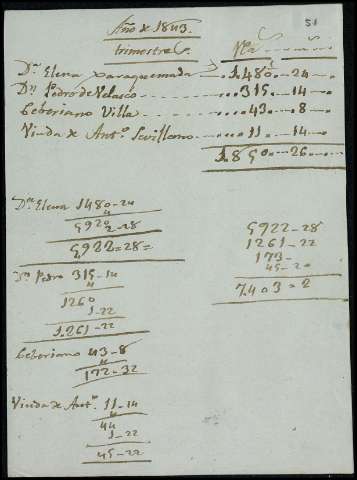 51
Año de 1843.
trimestre. Rs. ms.
Dª. Elena varaquemada 1480..24
Dn. Pedro de Velasco 315..14
Ceberiano Villa 43..8
Viuda de Antº. Sevillano 11..14
1.850..26
Dª. Elena 1480..24
4
5920
2-28
5922=28=
Dn. Pedro 315-14
4
1260
1-22
1.261-22
Ceberiano 43-8
4
172-32
Viuda de Antº. 11-14
4
44
1-22
45-22
5922-28
1261-22
173-
45-20
7.403=2